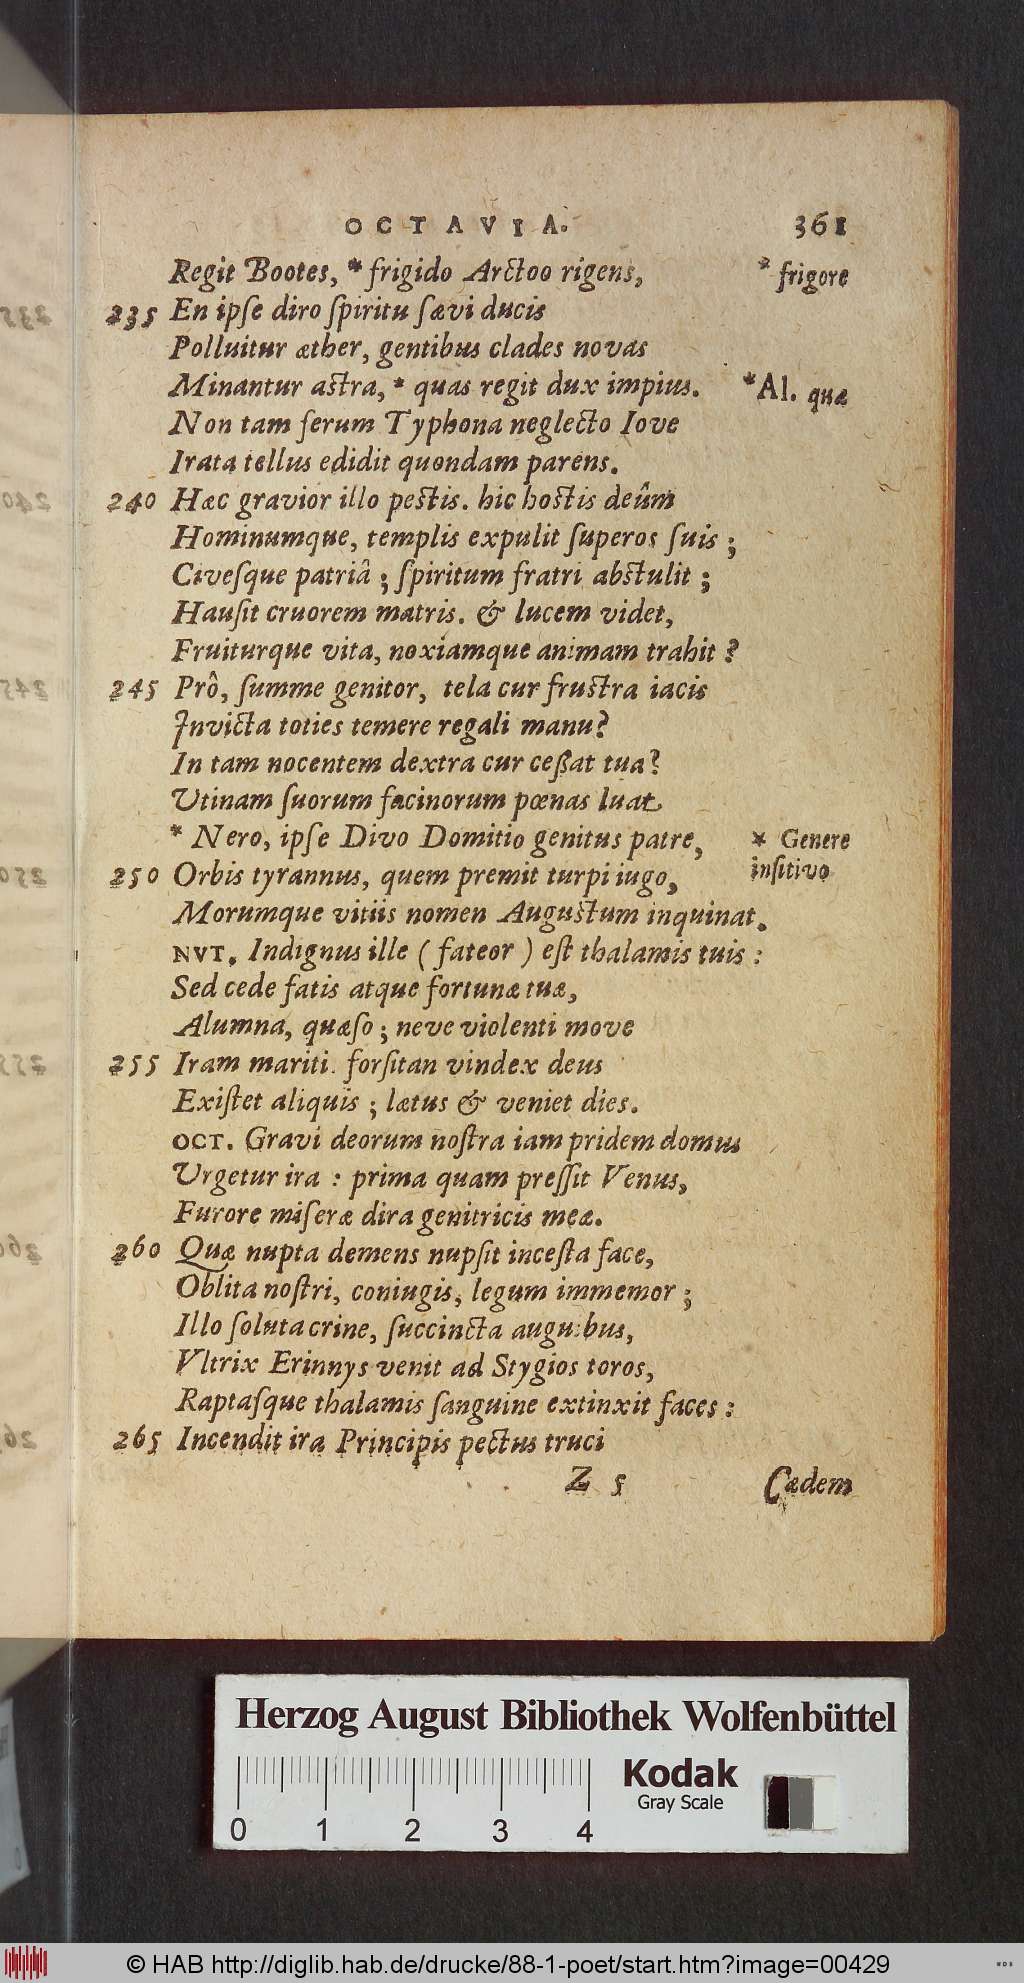 OCTAVIA. 361
Regit Bootes, * frigido Arctoo rigens, * frigore
235 En ipse diro spiritu sævi ducis
Polluitur æther, gentibus clades novas
Minantur astra, * quas regit dux impius. * Al. quæ
Non tam ferum Typhona neglecto Iove
Irata tellus edidit quondam parens.
240 Hæc gravior illo pestis. hic hostis deûm
Hominumque, templis expulit superos suis ;
Civesque patriâ ; spiritum fratri abstulit ;
Hausit cruorem matris. & lucem videt,
Fruiturque vita, noxiamque animam trahit ?
245 Prô, summe genitor, tela cur frustra iacis
Invicta toties temere regali manu?
In tam nocentem dextra cur ceßat tua?
Utinam suorum facinorum pœnas luat
* Nero, ipse Divo Domitio genitus patre, * Genere
insitivo
250 Orbis tyrannus, quem premit turpi iugo,
Morumque vitiis nomen Augustum inquinat.
NVT. Indignus ille ( fateor ) est thalamis tuis :
Sed cede fatis atque fortunæ tuæ,
Alumna, quæso ; neve violenti move
255 Iram mariti. forsitan vindex deus
Existet aliquis ; lætus & veniet dies.
OCT. Gravi deorum nostra iam pridem domus
Urgetur ira : prima quam pressit Venus,
Furore miseræ dira genitricis meæ.
260 Quæ nupta demens nupsit incesta face,
Oblita nostri, coniugis, legum immemor ;
Illo soluta crine, succincta anguibus,
Vltrix Erinnys venit ad Stygios toros,
Raptasque thalamis sanguine extinxit faces :
265 Incendit ira Principis pectus truci
Z 5 Cædem
Herzog August Bibliothek Wolfenbüttel
Kodak
Gray Scale
0 1 2 3 4
© HAB http://diglib.hab.de/drucke/88-1-poet/start.htm?image=00429